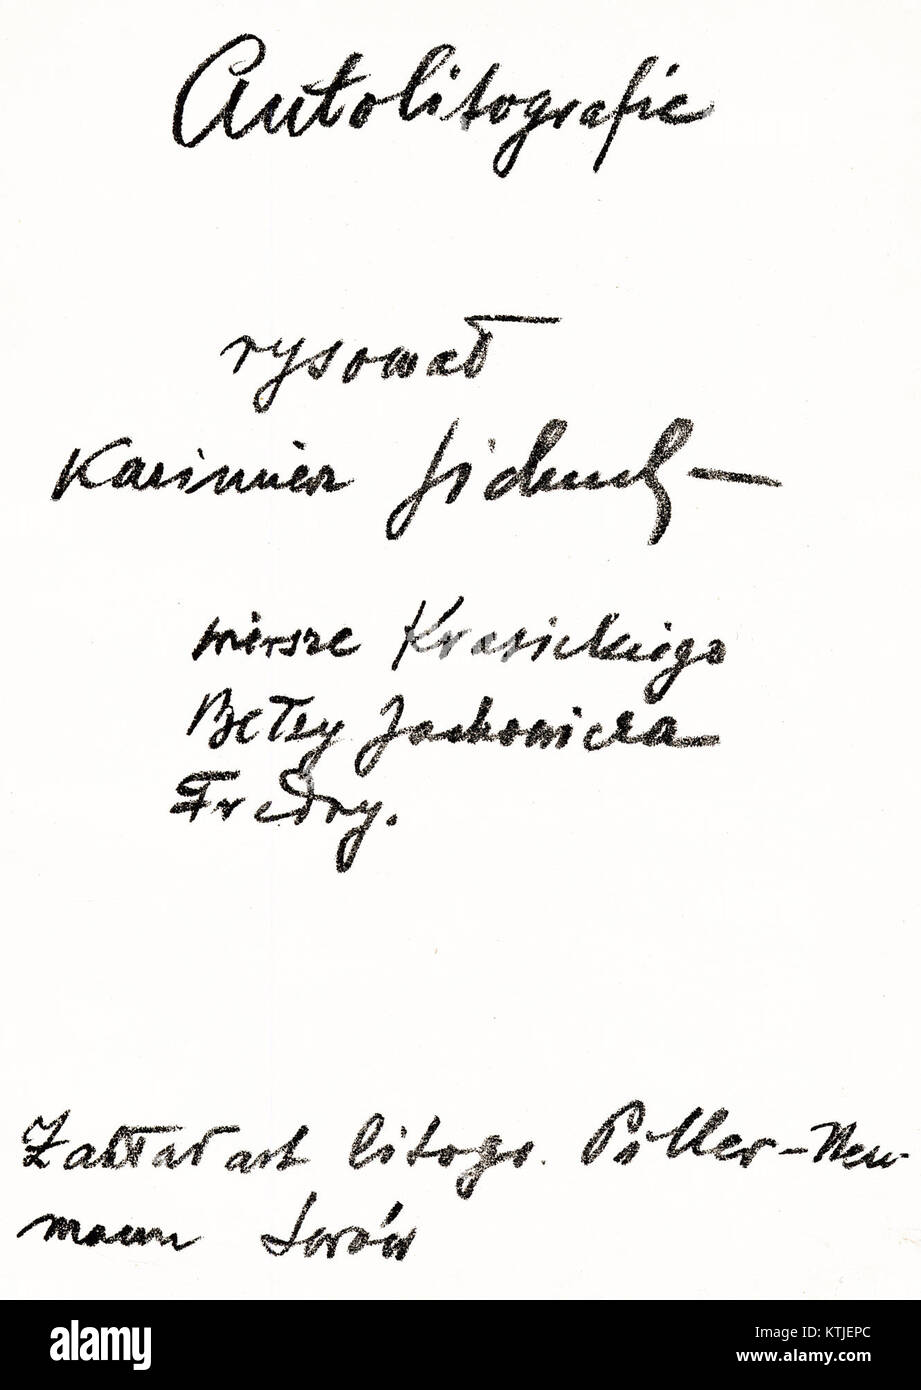 Autolitografie
rysował
Kazimierz Sichulski
wiersze Krasickiego
Betsy Jachowicza
Fredry.
Zakład art litogr. Piller-Neu-
mann Lwów
alamy
alamy
Image ID: KTJEPC
www.alamy.com